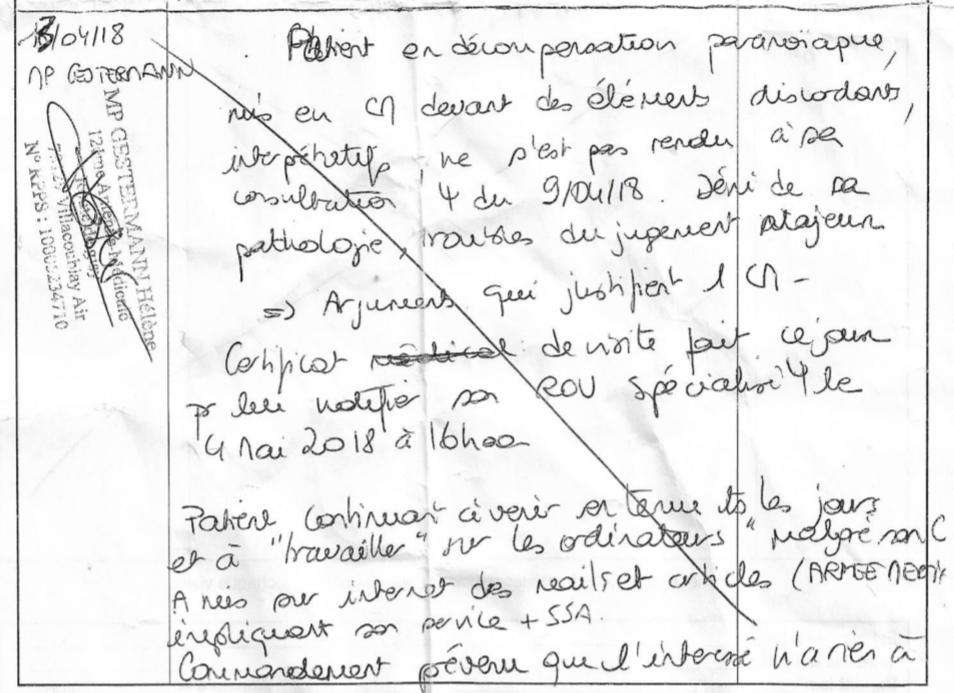 13/04/18
MP GESTERMANN
MP GESTERMANN Hélène
12ème Antenne Médicale
Villacoublay Air
N° RPPS : 10005234710
Patient en décompensation paranoïaque,
mis en CM devant des éléments discordants,
interprétatifs, ne s'est pas rendu à sa
consultation Ψ du 9/04/18. Déni de sa
pathologie, troubles du jugement majeurs
=> Arguments qui justifient 1 CM -
Certificat médical de visite fait ce jour
pr leui notifier son RDV spécialisé Ψ le
4 Mai 2018 à 16h00
Patient continuant à venir en tenue ts les jours
et à "travailler" sur les ordinateurs " malgré son C
A mis sur internet des mails et articles (ARMEE MEDI
impliquant son service + SSA.
Commandement prévenu que l'interessé n'a rien à